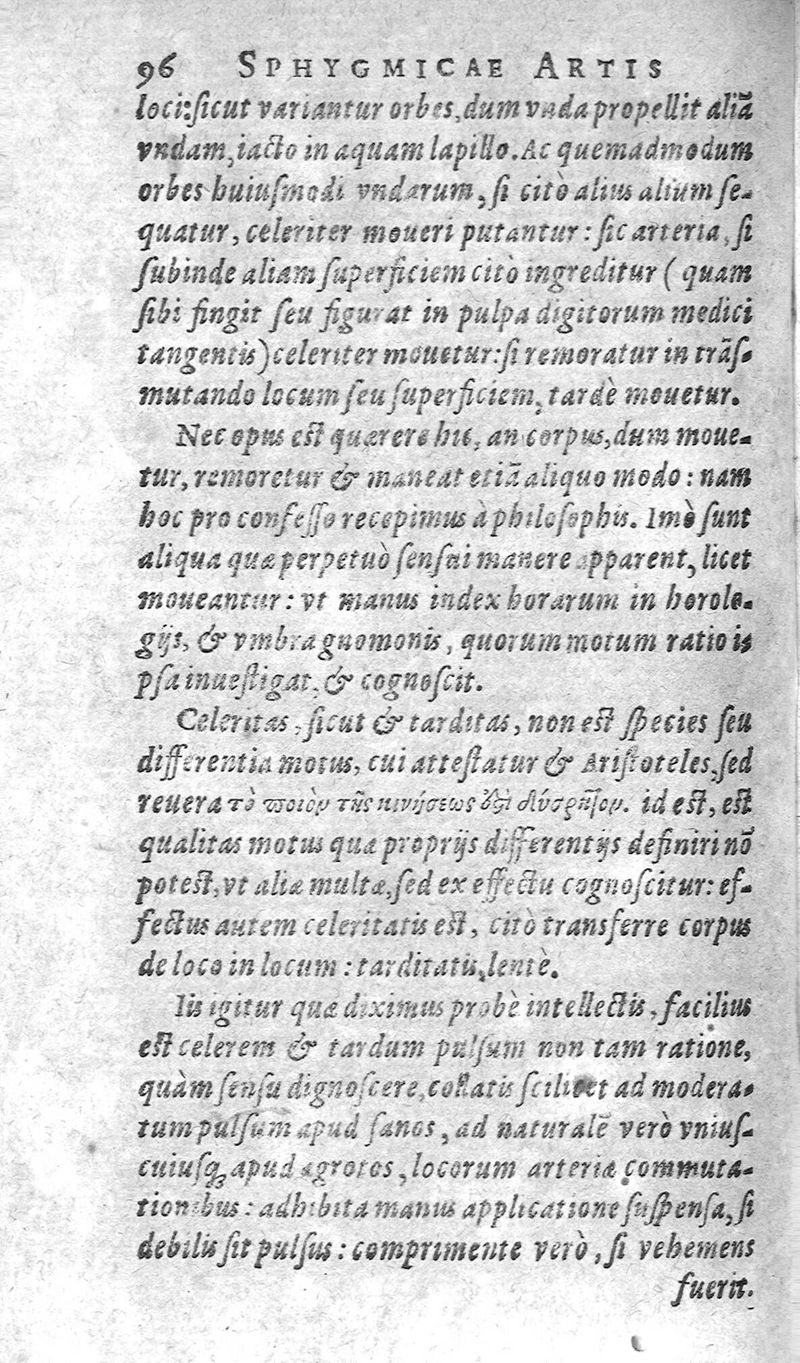 96 SPHYGMICAE ARTIS
loci: ſicut variantur orbes, dum vnda propellit aliã
vndam, iacto in aquam lapillo. Ac quemadmodum
orbes huiuſmodi vndarum, ſi citò alius alium ſe-
quatur, celeriter moueri putantur: ſic arteria, ſi
ſubinde aliam ſuperficiem citò ingreditur ( quam
ſibi fingit ſeu figurat in pulpa digitorum medici
tangentis) celeriter mouetur: ſi remoratur in trãſ-
mutando locum ſeu ſuperficiem, tardè mouetur.
Nec opus est quærere hic, an corpus, dum moue-
tur, remoretur & maneat etiã aliquo modo: nam
hoc pro confeſſo recepimus à philoſophis. Imò ſunt
aliqua quæ perpetuò ſenſui manere apparent, licet
moueantur: vt manus index horarum in horolo-
gijs, & vmbra gnomonis, quorum motum ratio i-
pſa inueſtigat, & cognoſcit.
Celeritas, ſicut & tarditas, non est ſpecies ſeu
differentia motus, cui atteſtatur & Ariſtoteles, ſed
reuera τὸ ποιὸν τῆς κινήσεως id est, est
qualitas motus quæ proprijs differentijs definiri nõ
potest, vt aliæ multæ, ſed ex effectu cognoſcitur: ef-
fectus autem celeritatis est, citò transferre corpus
de loco in locum: tarditatis, lentè.
Iis igitur quæ diximus probè intellectis, facilius
est celerem & tardum pulſum non tam ratione,
quàm ſenſu dignoſcere, collatis ſcilicet ad modera-
tum pulſum apud ſanos, ad naturalẽ verò vniuſ-
cuiuſq; apud ægrotos, locorum arteriæ commuta-
tionibus: adhibita manus applicatione ſuſpenſa, ſi
debilis ſit pulſus: comprimente verò, ſi vehemens
fuerit.